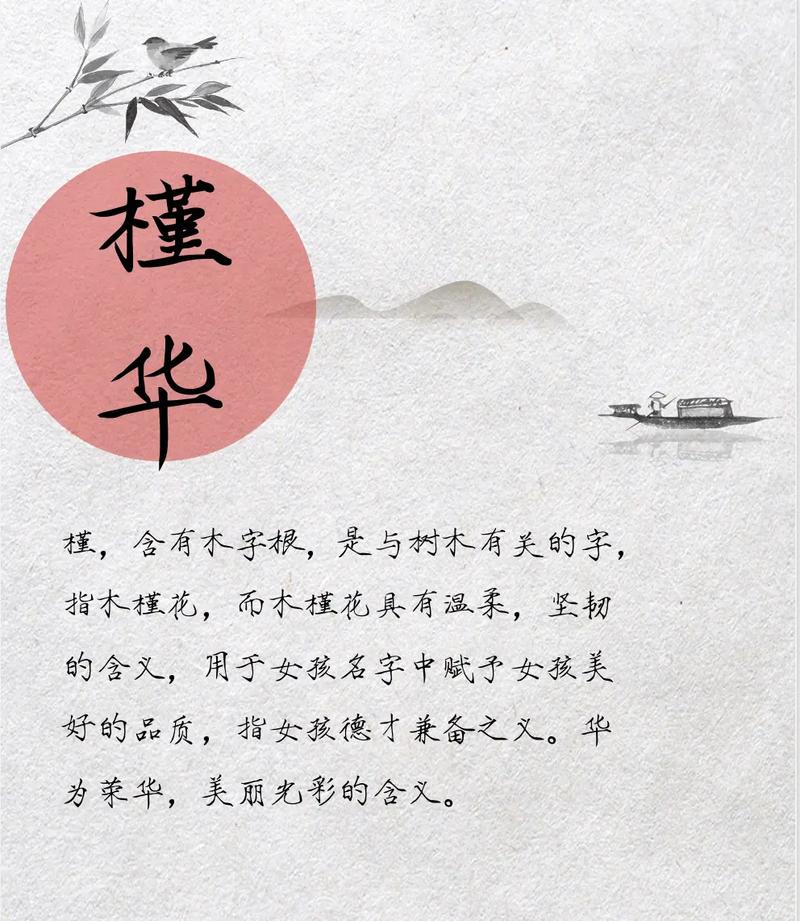 槿
华
槿，含有木字根，是与树木有关的字，
指木槿花，而木槿花具有温柔，坚韧
的含义，用于女孩名字中赋予女孩美
好的品质，指女孩德才兼备之义。华
为荣华，美丽光彩的含义。